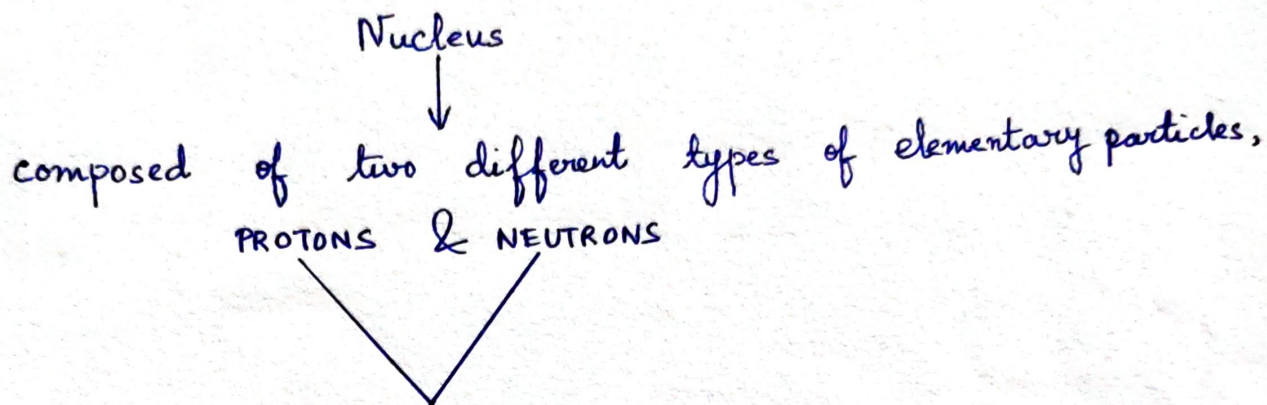 Nucleus
composed of two different types of elementary particles,
PROTONS & NEUTRONS